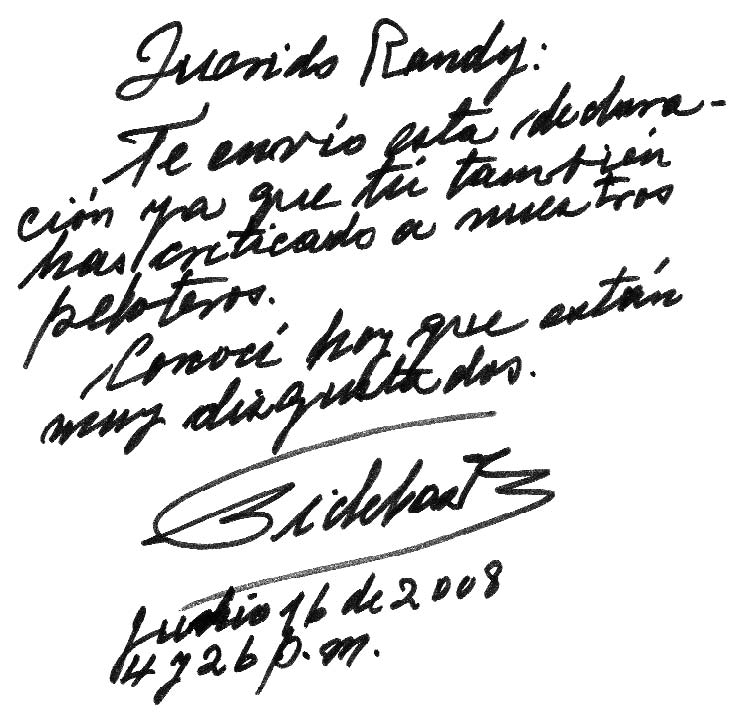 Querido Randy:
Te envío esta declara-
ción ya que tú también
has criticado a nuestros
peloteros.
Conocí hoy que están
muy disgustados.
Fidel Castro
Junio 16 de 2008
4 y 26 p.m.